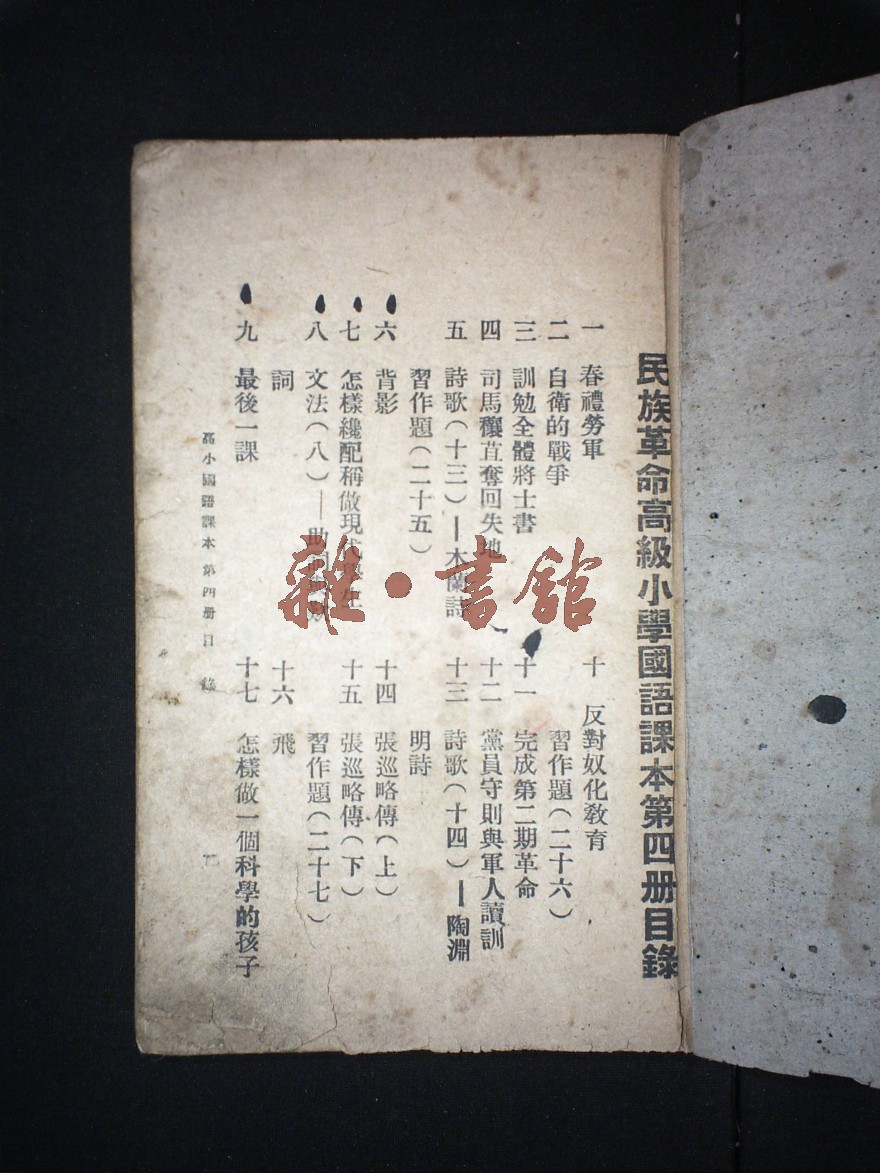 民族革命高級小學國語課本第四册目錄
一 春禮勞軍
二 自衛的戰爭
三 訓勉全體將士書
四 司馬穰苴奪回失地
五 詩歌(十三)—木蘭詩
習作題(二十五)
六 背影
七 怎樣纔配稱做現代學生
八 文法(八)—助
詞
九 最後一課
十 反對奴化教育
習作題(二十六)
十一 完成第二期革命
十二 黨員守則與軍人讀訓
十三 詩歌(十四)—陶淵
明詩
十四 張巡略傳(上)
十五 張巡略傳(下)
習作題(二十七)
十六 飛
十七 怎樣做一個科學的孩子
高小國語課本 第四册 目錄
雜·書館